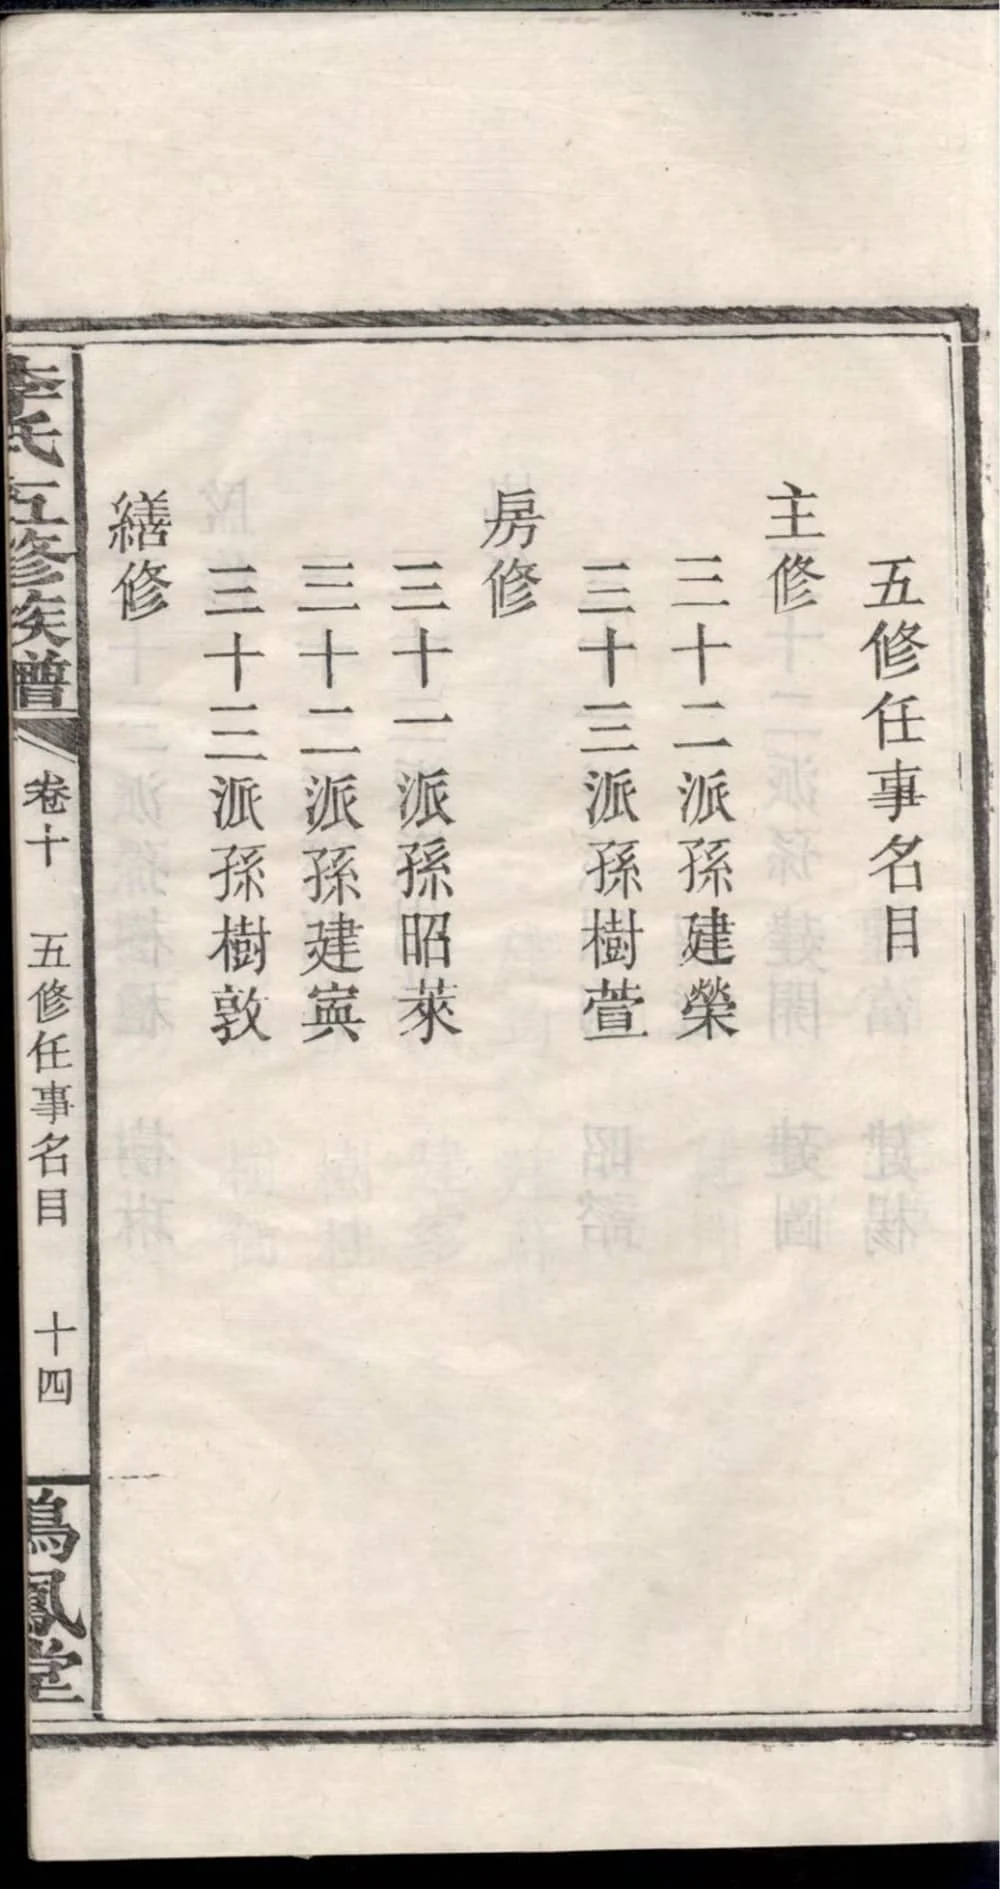 五修任事名目
主修
三十二派孫建榮
三十三派孫樹萱
房修
三十一派孫昭萊
三十二派孫建寅
三十三派孫樹敦
繕修
李氏五修族譜
卷十
五修任事名目
十四
鳴鳳堂